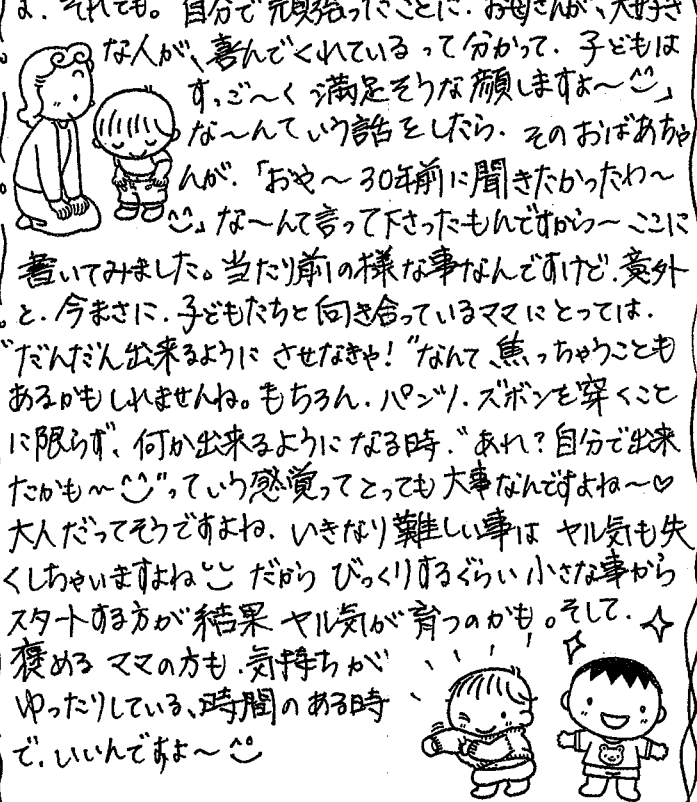 よ. それでも。自分で頑張ったことに. お母さんが、大好き
な人が、喜んでくれているって分かって. 子どもは
すっご〜く 満足そうな顔しますよ〜^^」
な〜んていう話をしたら. そのおばあちゃ
んが.「おや〜 30年前に聞きたかったわ〜
^^」な〜んて言って下さったもんですから〜 ここに
書いてみました。当たり前の様な事なんですけど. 意外
と. 今まさに. 子どもたちと向き合っているママにとっては.
"だんだん出来るように させなきゃ!"なんて、焦っちゃうことも
あるかもしれませんね。もちろん. パンツ. ズボンを穿くこと
に限らず、何か出来るようになる時. "あれ?自分で出来
たかも〜^^"っていう感覚ってとっても大事なんですよね〜♡
大人だってそうですよね. いきなり難しい事は ヤル気も失
くしちゃいますよね だから びっくりするぐらい小さな事から
スタートする方が結果 ヤル気が育つのかも。そして.
褒める ママの方も. 気持ちが
ゆったりしている、時間のある時
で. いいんですよ〜^^